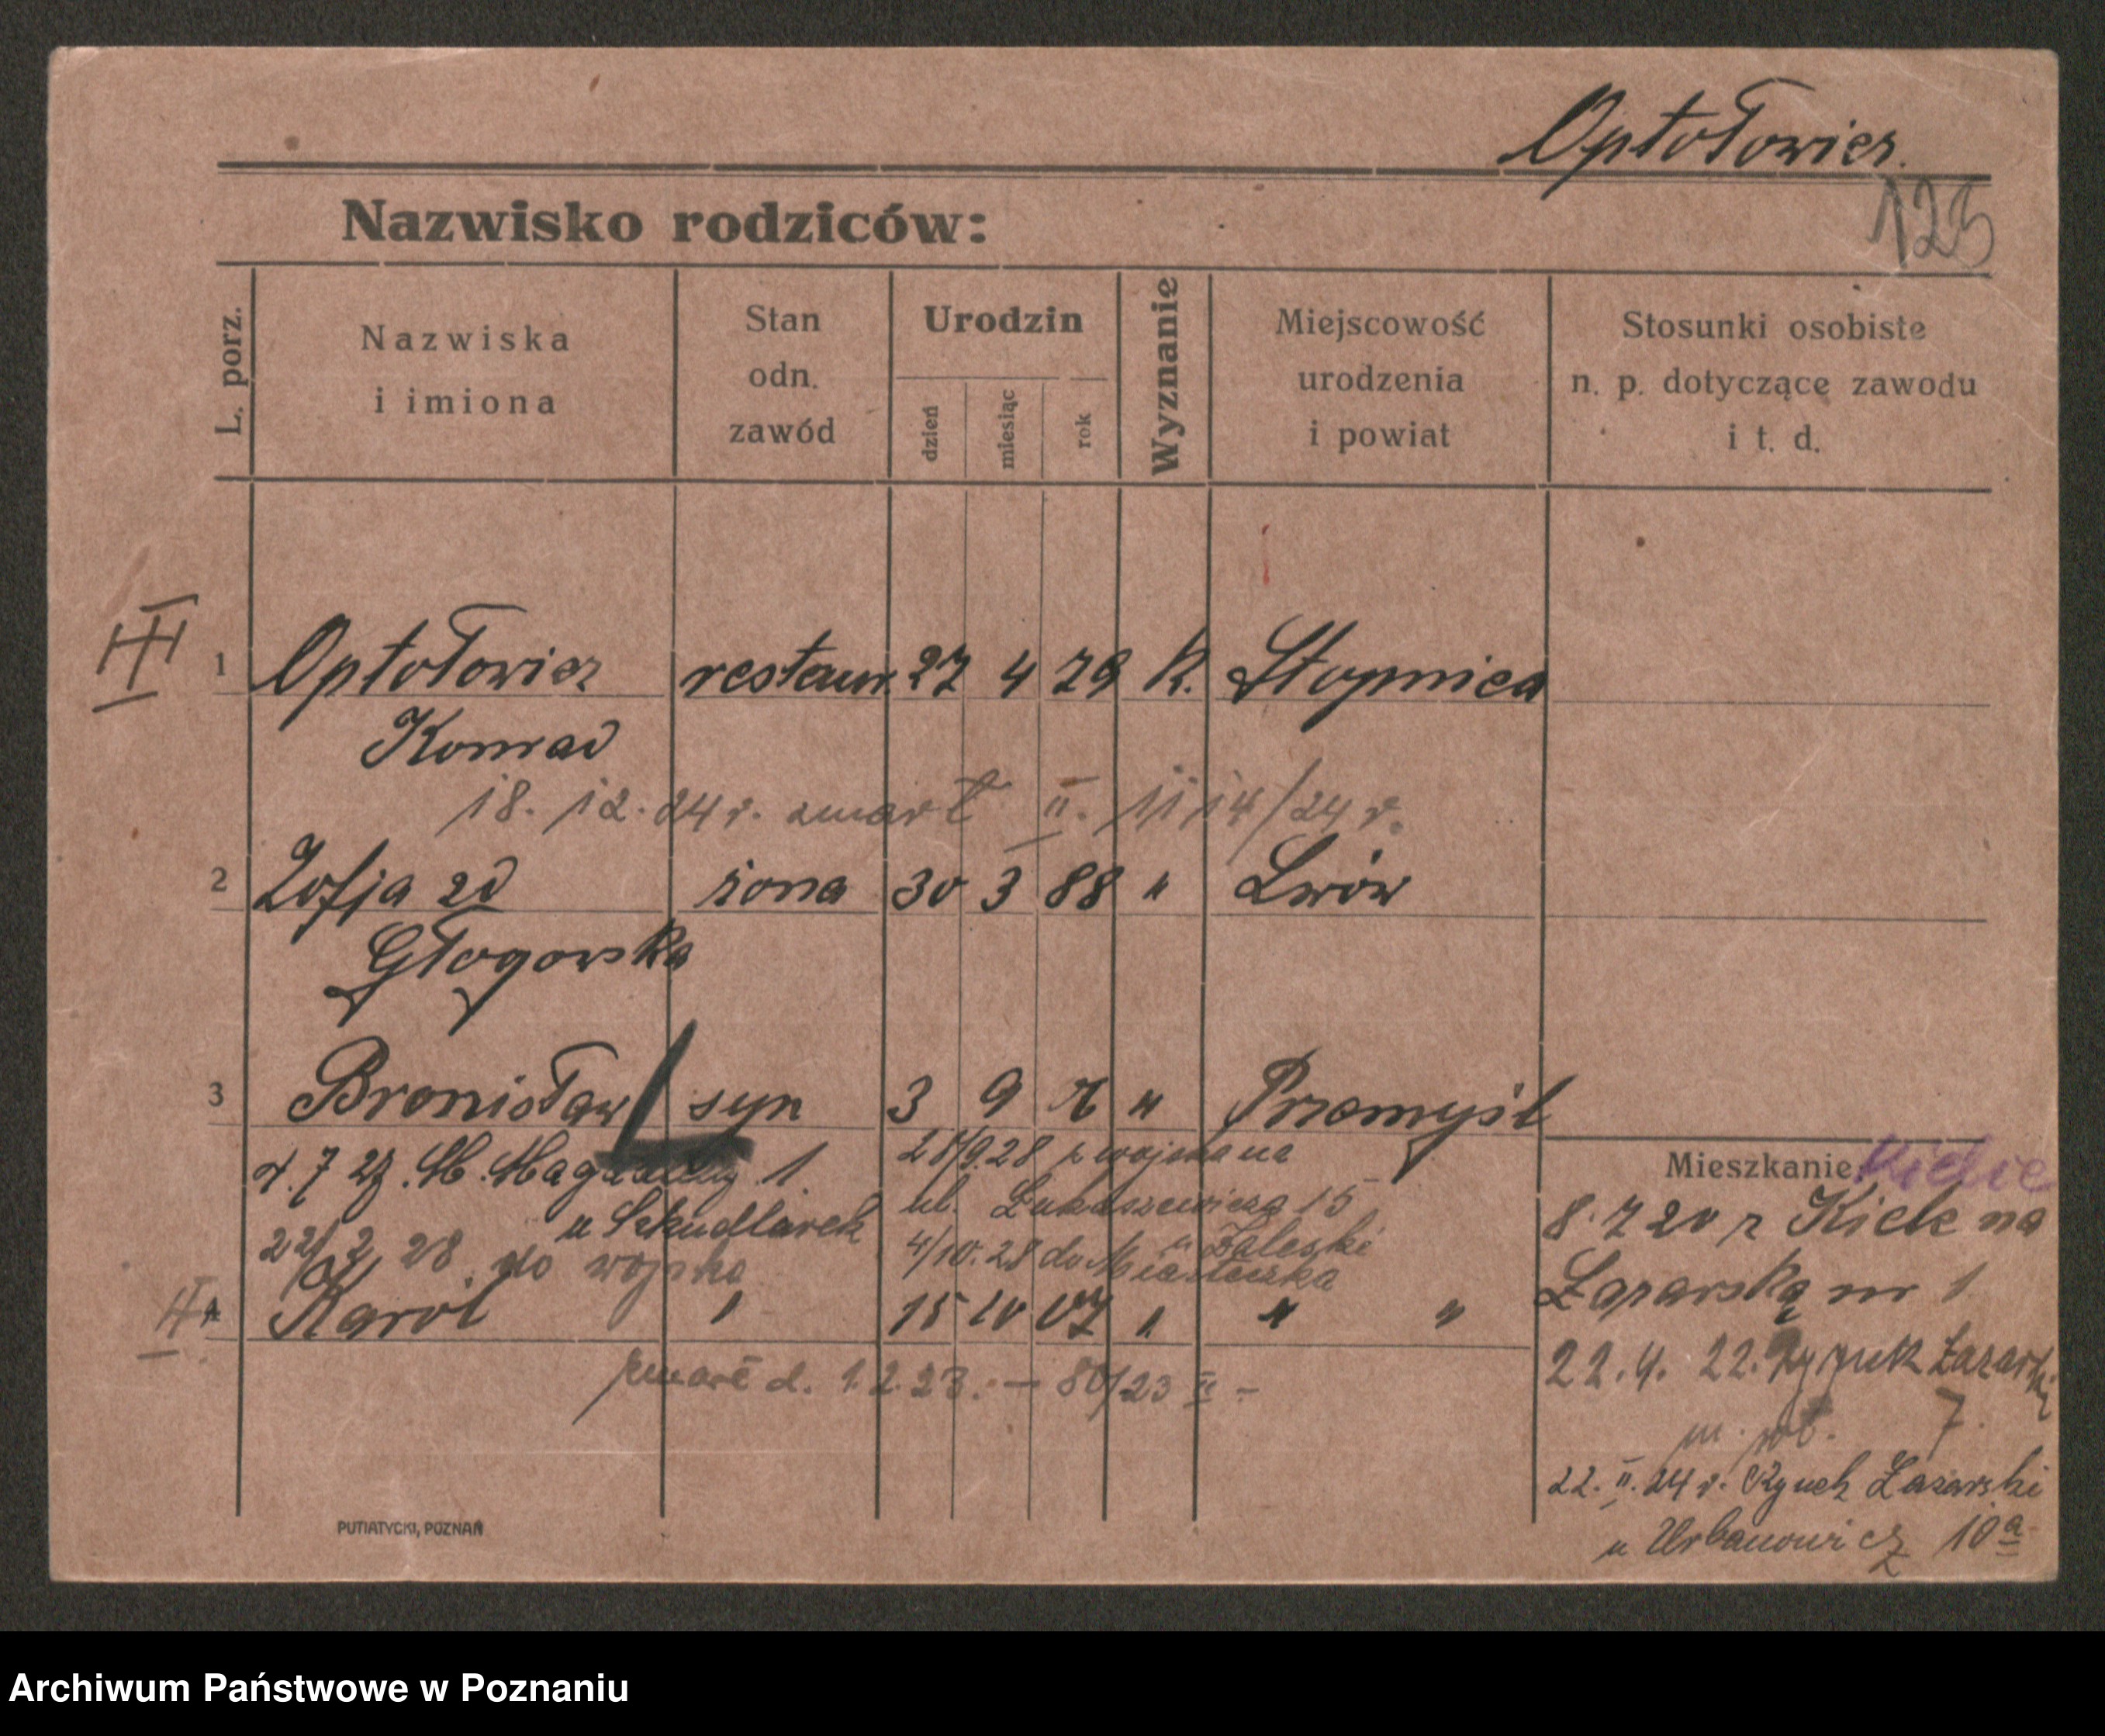 Optołowicz.
123
Nazwisko rodziców:
L. porz.
Nazwiska
i imiona
Stan
odn.
zawód
Urodzin
dzień
miesiąc
rok
Wyznanie
Miejscowość
urodzenia
i powiat
Stosunki osobiste
n. p. dotyczące zawodu
i t. d.
III
1 Optołowicz restaur. 27 4 79 K. Stopnica
Konrad
18. 12. 24 r. zmarł II. 1114/24 r.
2 Zofja zd żona 30 3 88 " Lwów
Głogowska
3 Bronisław syn 3 9 " Przemyśl
7 27 M. Magdaleny 1.
u Szkudlarek
22/2 28 do wojska
28/9.28 z wojska na
ul. Łukaszewicza 15
u Zaleski
4/10.28 do Miasteczka
II
4 Karol " 15 10 07 " " "
zmarł d. 1.2.23. — 80/23 II –
Mieszkanie:
8.7 20 z Kielc na
Łazarską nr 1
22.4. 22. Rynek Łazarski
7.
22. II. 24 r. Rynek Łazarski
u Urbanowicz 10a
PUTIATYCKI, POZNAŃ
Archiwum Państwowe w Poznaniu